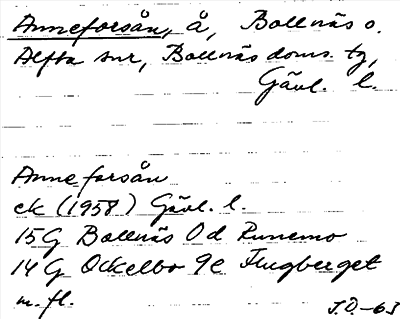 Anneforsån, å, Bollnäs o.
Alfta snr, Bollnäs doms. tg,
Gävl. l.
Anneforsån
ek (1958) Gävl. l.
15G Bollnäs 0d Runemo
14G Ockelbo 9c Flugberget
m.fl.
J.Ö.-63